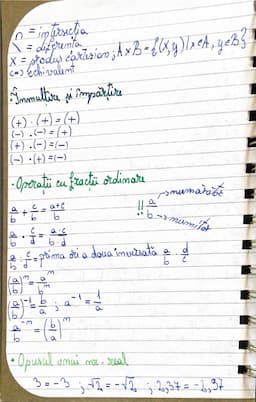 ∩ = intersecția
\ = diferența
X = produs cartezian; A×B = {(x,y) | x∈A, y∈B}
(⇔) echivalent
• Înmulțire și împărțire
(+) · (+) = (+)
(-) · (-) = (+)
(+) · (-) = (-)
(-) · (+) = (-)
• Operații cu fracții ordinare
a/b + c/b = a+c/b
!! a/b → numărător
→ numitor
a/b · c/d = a·c/b·d
a/b : c/d = prima ori a doua inversată a/b · d/c
(a/b)^m = a^m/b^m
(a/b)^-1 = b/a ; a^-1 = 1/a
a/b^-m = (b/a)^m
• Opusul unui nr. real
3 = -3 ; √2 = -√2 ; 2,37 = -2,37